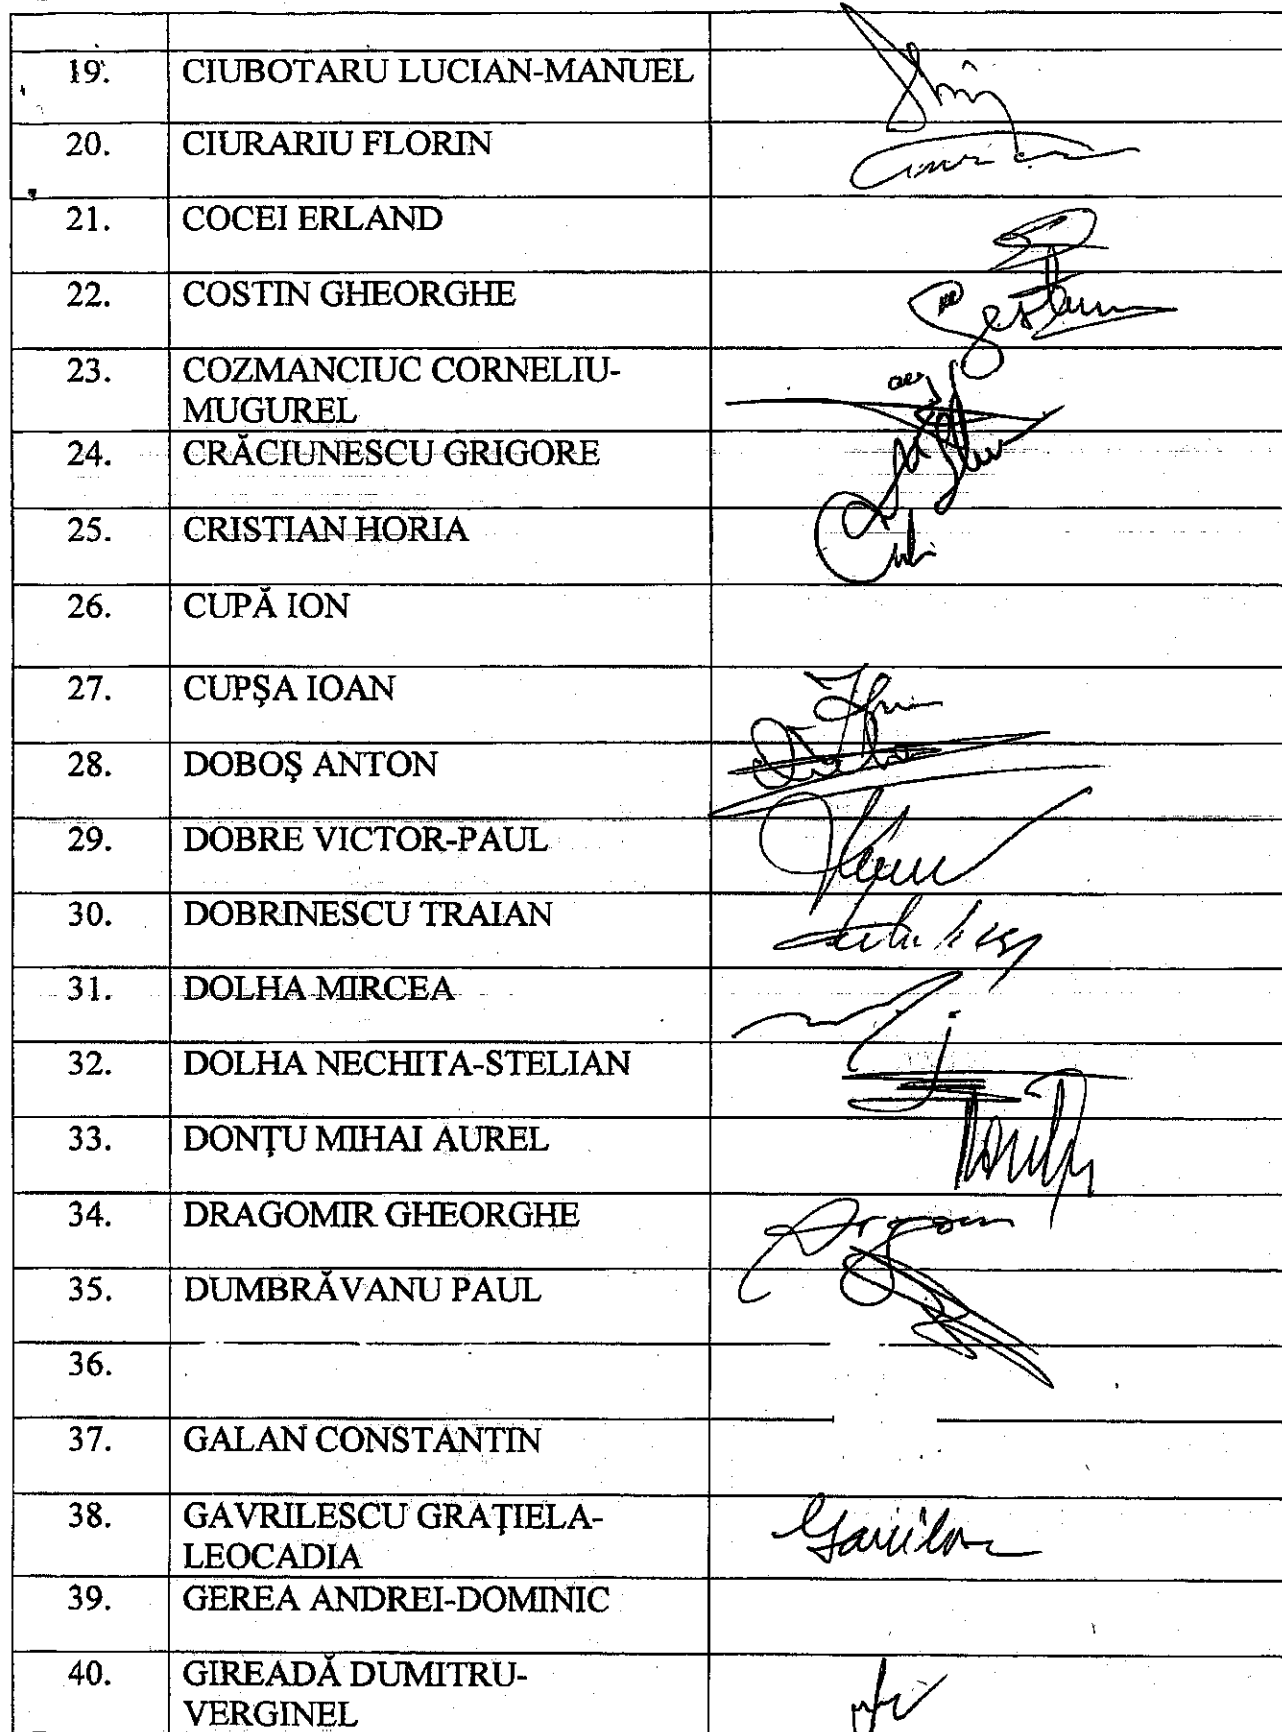 19. CIUBOTARU LUCIAN-MANUEL
20. CIURARIU FLORIN
21. COCEI ERLAND
22. COSTIN GHEORGHE
23. COZMANCIUC CORNELIU-
MUGUREL
24. CRĂCIUNESCU GRIGORE
25. CRISTIAN HORIA
26. CUPĂ ION
27. CUPŞA IOAN
28. DOBOŞ ANTON
29. DOBRE VICTOR-PAUL
30. DOBRINESCU TRAIAN
31. DOLHA MIRCEA
32. DOLHA NECHITA-STELIAN
33. DONŢU MIHAI AUREL
34. DRAGOMIR GHEORGHE
35. DUMBRĂVANU PAUL
36.
37. GALAN CONSTANTIN
38. GAVRILESCU GRAŢIELA-
LEOCADIA
39. GEREA ANDREI-DOMINIC
40. GIREADĂ DUMITRU-
VERGINEL